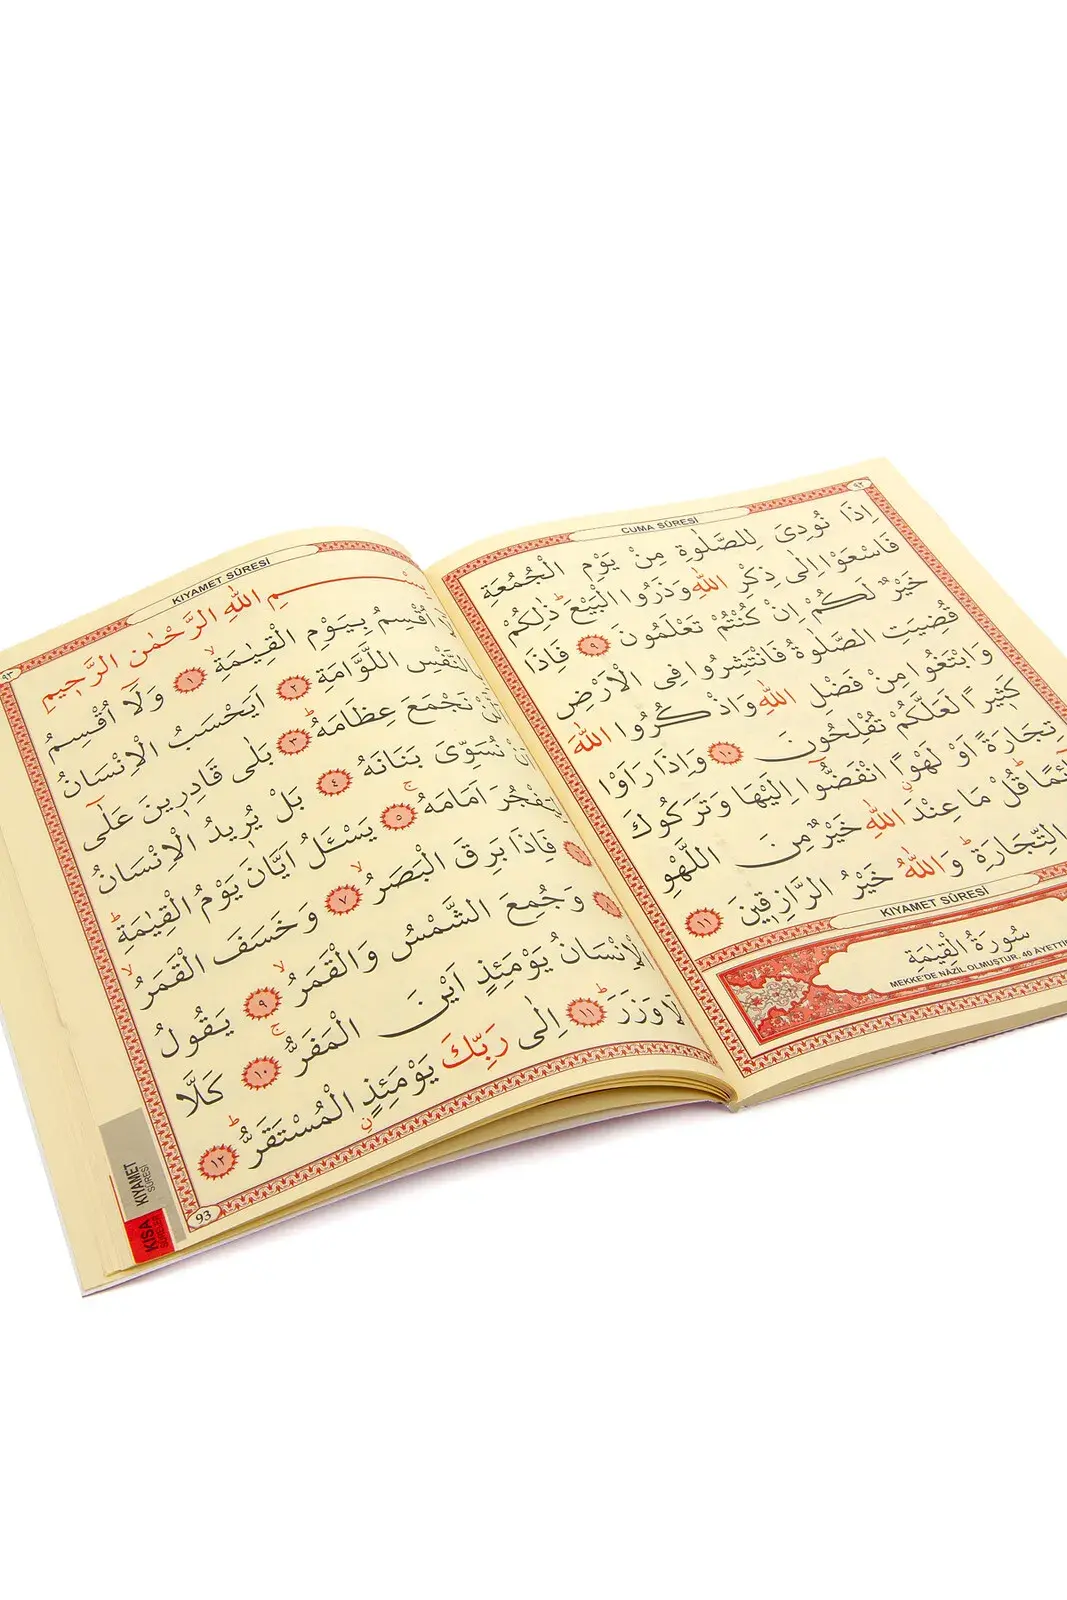 ٩٢
CUMA SÛRESİ
اِذَا نُودِىَ لِلصَّلٰوةِ مِنْ يَوْمِ الْجُمُعَةِ
فَاسْعَوْا اِلٰى ذِكْرِ اللّٰهِ وَذَرُوا الْبَيْعَۜ ذٰلِكُمْ
خَيْرٌ لَكُمْ اِنْ كُنْتُمْ تَعْلَمُونَ ٩ فَاِذَا
قُضِيَتِ الصَّلٰوةُ فَانْتَشِرُوا فِى الْاَرْضِ
وَابْتَغُوا مِنْ فَضْلِ اللّٰهِ وَاذْكُرُوا اللّٰهَ
كَثِيرًا لَعَلَّكُمْ تُفْلِحُونَ ١٠ وَاِذَا رَاَوْا
تِجَارَةً اَوْ لَهْوًاۨ انْفَضُّٓوا اِلَيْهَا وَتَرَكُوكَ
قُلْ مَا عِنْدَ اللّٰهِ خَيْرٌ مِنَ اللَّهْوِ
التِّجَارَةِۜ وَاللّٰهُ خَيْرُ الرَّازِقِينَ ١١
KIYAMET SÛRESİ
سُورَةُ الْقِيٰمَةِ
MEKKE'DE NÂZİL OLMUŞTUR. 40 ÂYETTİR
٩٣
KIYAMET SÛRESİ
بِسْمِ اللّٰهِ الرَّحْمٰنِ الرَّحِيمِ
اُقْسِمُ بِيَوْمِ الْقِيٰمَةِۙ ١ وَلَٓا اُقْسِمُ
بِالنَّفْسِ اللَّوَّامَةِ ٢ اَيَحْسَبُ الْاِنْسَانُ
نَجْمَعَ عِظَامَهُۜ ٣ بَلٰى قَادِرِينَ عَلٰٓى
اَنْ نُسَوِّىَ بَنَانَهُ ٤ بَلْ يُرِيدُ الْاِنْسَانُ
لِيَفْجُرَ اَمَامَهُۚ ٥ يَسْـَٔلُ اَيَّانَ يَوْمُ الْقِيٰمَةِۜ
فَاِذَا بَرِقَ الْبَصَرُۙ ٧ وَخَسَفَ الْقَمَرُۙ
٨ وَجُمِعَ الشَّمْسُ وَالْقَمَرُۙ ٩ يَقُولُ
الْاِنْسَانُ يَوْمَئِذٍ اَيْنَ الْمَفَرُّۚ ١٠ كَلَّا
لَا وَزَرَۜ ١١ اِلٰى رَبِّكَ يَوْمَئِذٍۨ الْمُسْتَقَرُّۜ ١٢
93
KIYAMET
SÛRESİ
KISA
SÛRELER